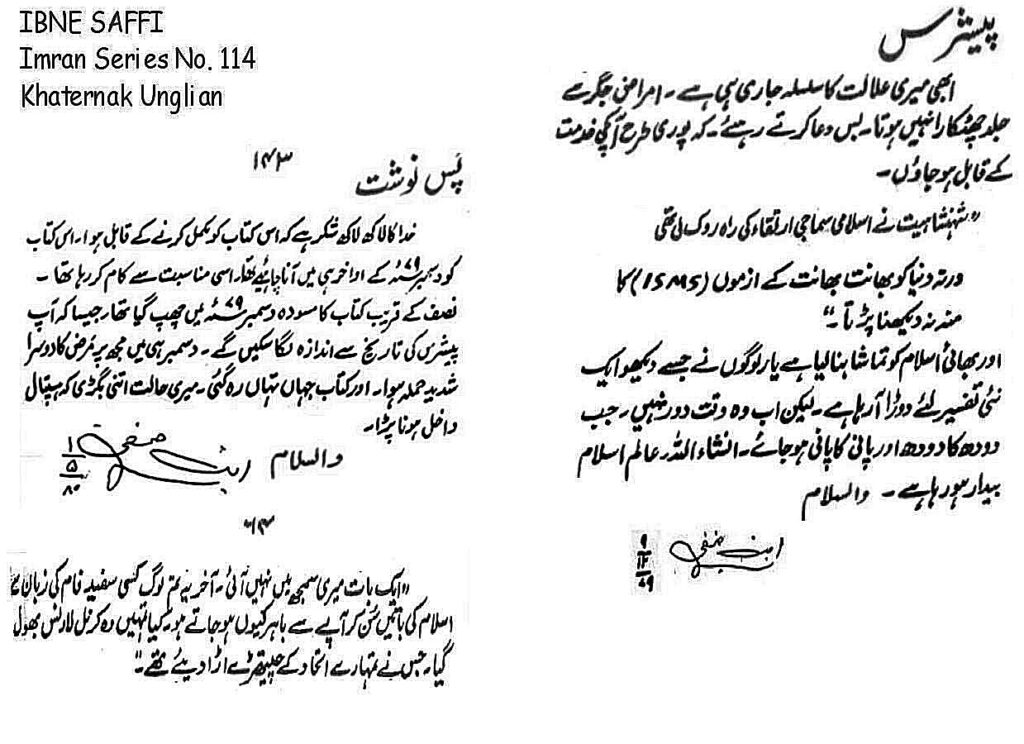 IBNE SAFFI
Imran Series No. 114
Khaternak Unglian
پیشرس
ابھی میری علالت کا سلسلہ جاری ہی ہے۔ امراضِ جگر سے
جلد چھٹکارا نہیں ہوتا۔ بس دعا کرتے رہئے۔ کہ پوری طرح آپکی خدمت
کے قابل ہو جاؤں۔
"شہنشاہیت نے اسلامی سماجی ارتقاء کی راہ روک لی تھی
ورنہ دنیا کو بھانت بھانت کے ازموں (ISMS) کا
منہ نہ دیکھنا پڑتا۔"
اور بھائی اسلام کو تماشا بنا لیا ہے یار لوگوں نے جسے دیکھو ایک
نئی تفسیر لئے دوڑا آ رہا ہے۔ لیکن اب وہ وقت دور نہیں۔ جب
دودھ کا دودھ اور پانی کا پانی ہو جائے۔ انشاء اللہ عالم اسلام
بیدار ہو رہا ہے۔ والسلام
ابن صفی
۹
۱۲
۷۹
۱۴۳
پس نوشت
خدا کا لاکھ لاکھ شکر ہے کہ اس کتاب کو مکمل کرنے کے قابل ہوا۔ اس کتاب
کو دسمبر ۷۹ء کے اواخر ہی میں آنا چاہئے تھا۔ اسی مناسبت سے کام کر رہا تھا۔
نصف کے قریب کتاب کا مسودہ دسمبر ۷۹ء میں چھپ گیا تھا۔ جیسا کہ آپ
پیشرس کی تاریخ سے اندازہ لگا سکیں گے۔ دسمبر ہی میں مجھ پر مرض کا دوسرا
شدید حملہ ہوا۔ اور کتاب جہاں تہاں رہ گئی۔ میری حالت اتنی بگڑی کہ ہسپتال
داخل ہونا پڑا۔
والسلام ابن صفی
۱
۵
۸۰
"ایک بات میری سمجھ میں نہیں آئی۔ آخر یہ تم لوگ کسی سفید فام کی زبان سے
اسلام کی باتیں سن کر آپے سے باہر کیوں ہو جاتے ہو۔ کیا تمہیں وہ کرنل لارنس بھول
گیا۔ جس نے تمہارے اتحاد کے چیتھڑے اڑا دیئے تھے۔"